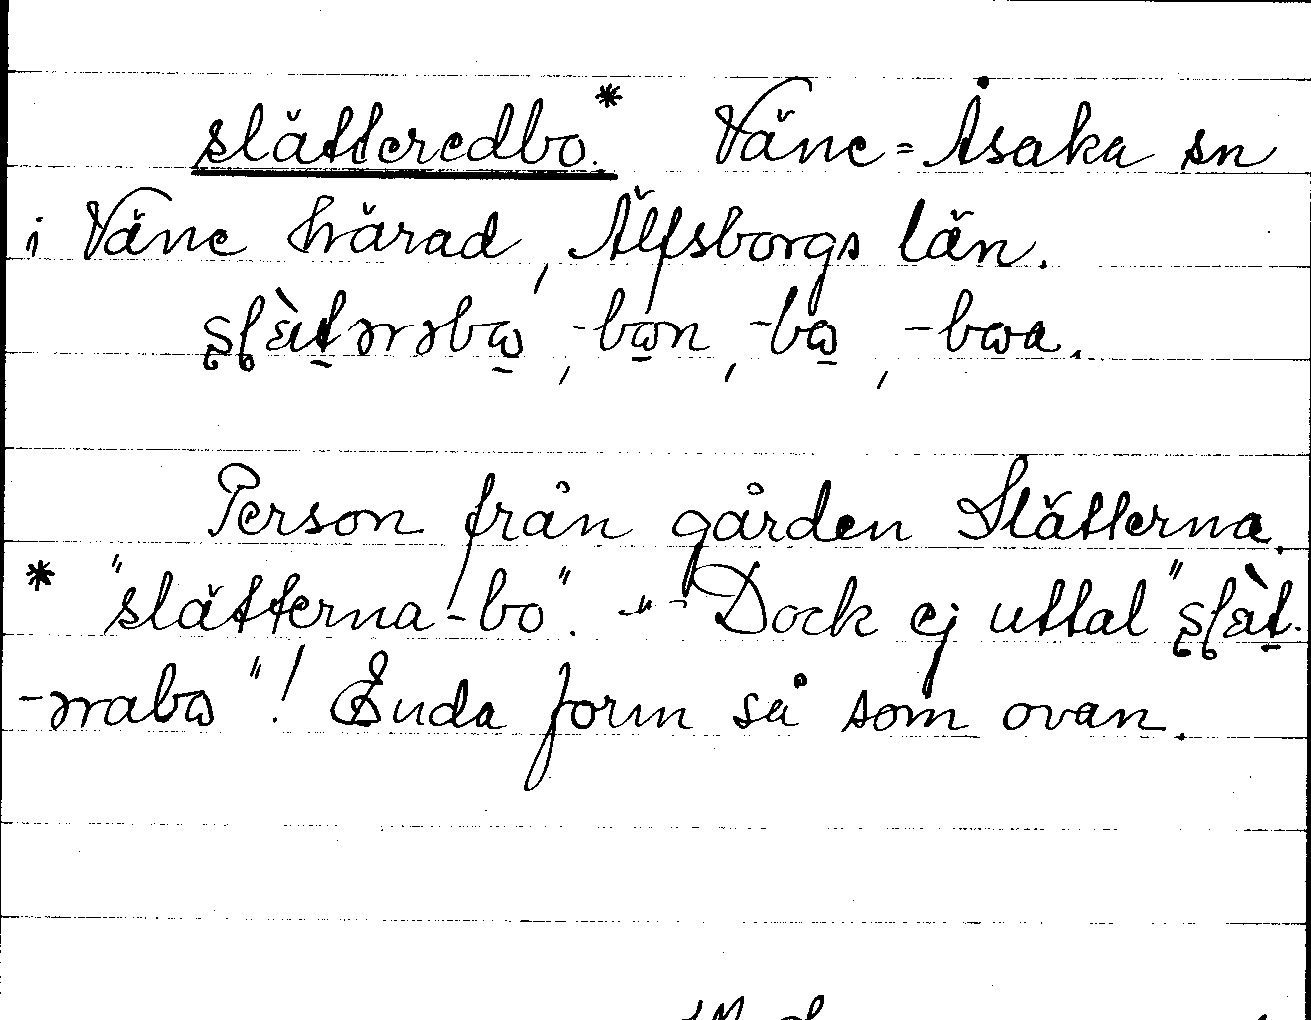 slätteredbo.* Väne-Åsaka sn
i Väne härad, Älfsborgs län.
s̢ḷàt̠ərəbω̠, -bω̠n, -bω̠, -bωa.
Person från gården Slätterna.
* "slätterna-bo". -"- Dock ej uttal "s̢ḷàt̠-
-ərabω"! Enda form så som ovan.